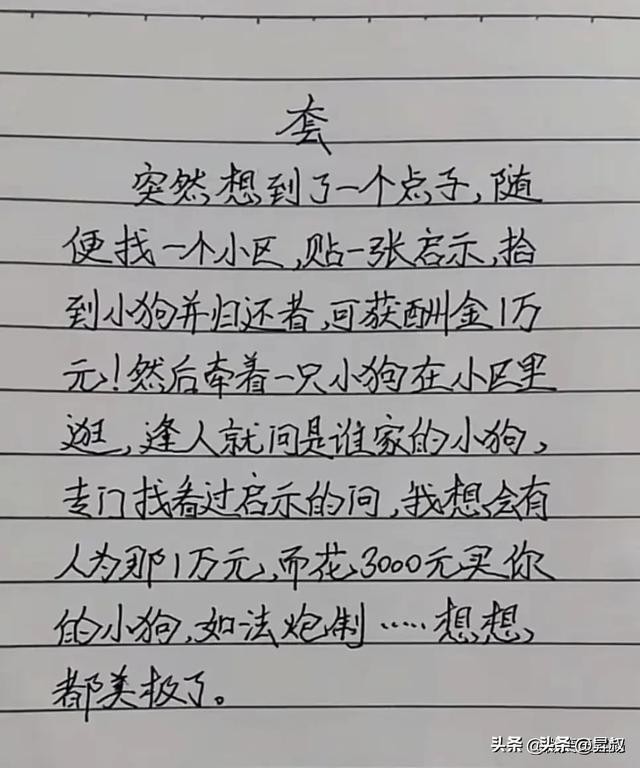 套
突然想到了一个点子,随
便找一个小区,贴一张启示,拾
到小狗并归还者,可获酬金1万
元!然后牵着一只小狗在小区里
逛,逢人就问是谁家的小狗,
专门找看过启示的问,我想会有
人为那1万元,而花3000元买你
的小狗,如法炮制……想想,
都美极了。
头条@头条@昙叔